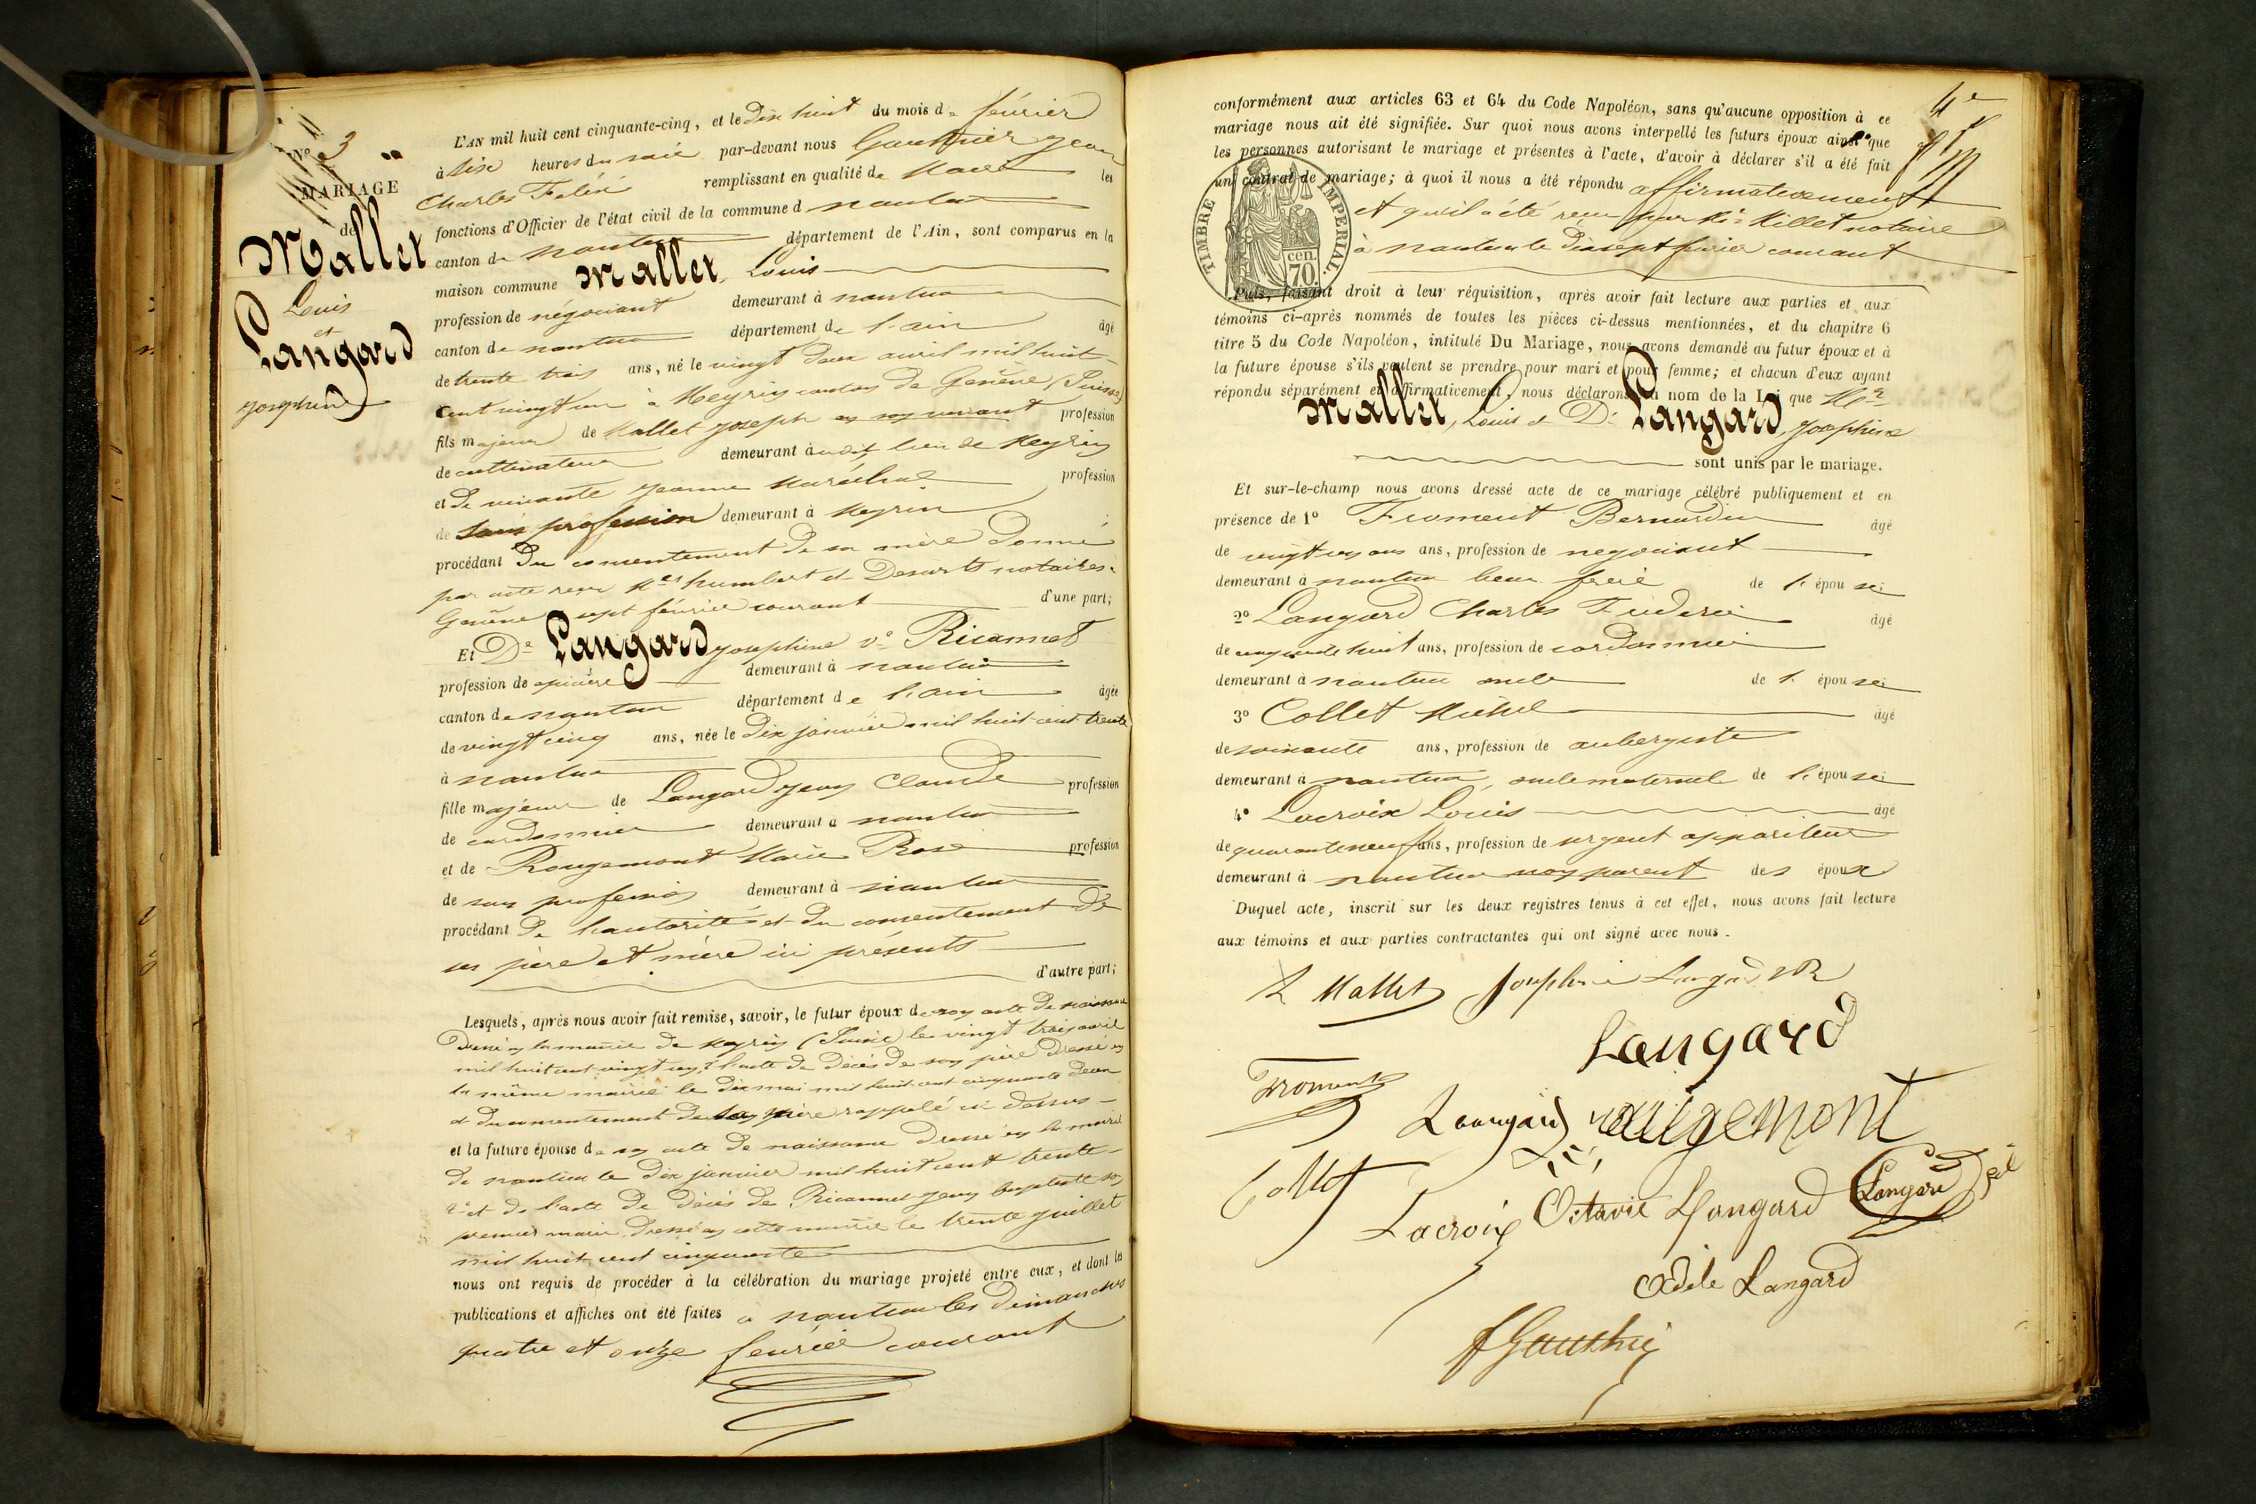 N° 3
MARIAGE
de
Mallet
Louis
et
Langard
Josephine
L'AN mil huit cent cinquante-cinq, et le dix huit du mois de février
à dix heures du soir par-devant nous Gauthier Jean
Charles Félix remplissant en qualité de Maire les
fonctions d'Officier de l'état civil de la commune d nantua
canton de nantua département de l'Ain, sont comparus en la
maison commune Mallet, Louis
profession de négociant demeurant à nantua
canton de nantua département de l'ain âgé
de trente trois ans, né le vingt deux avril mil huit
cent vingt un à Meyrin canton de Genève (Suisse)
fils majeur de Mallet Joseph en son vivant profession
de cultivateur demeurant audit lieu de Meyrin
et de vivante Jeanne Maréchal profession
de sans profession demeurant à Meyrin
procédant du consentement de sa mère donné
par acte reçu Mes humbert et notaires à
Genève sept février courant d'une part;
Et De Langard Josephine ve Ricannet
profession de épicière demeurant à nantua
canton de nantua département de l'ain âgée
de vingt cinq ans, née le dix janvier mil huit cent trente
à nantua
fille majeure de Langard Jean Claude profession
de cordonnier demeurant à nantua
et de Rougemont Marie Rose profession
de sans profession demeurant à nantua
procédant de l'autorité et du consentement de
ses père et mère ici présents
d'autre part;
Lesquels, après nous avoir fait remise, savoir, le futur époux de son acte de naissance
dressé en la mairie de Meyrin (Suisse) le vingt trois avril
mil huit cent vingt un, de l'acte de décès de son père dressé en
la même mairie le dix mai mil huit cent cinquante deux
et du consentement de sa mère rappelé ci dessus
et la future épouse de son acte de naissance dressé en la mairie
de nantua le dix janvier mil huit cent trente
et de l'acte de décès de Ricannet Jean baptiste son
premier mari dressé en cette mairie le trente juillet
mil huit cent cinquante
nous ont requis de procéder à la célébration du mariage projeté entre eux, et dont les
publications et affiches ont été faites à nantua les dimanches
quatre et onze février courant
4e
conformément aux articles 63 et 64 du Code Napoléon, sans qu'aucune opposition à ce
mariage nous ait été signifiée. Sur quoi nous avons interpellé les futurs époux ainsi que
les personnes autorisant le mariage et présentes à l'acte, d'avoir à déclarer s'il a été fait
un contrat de mariage; à quoi il nous a été répondu affirmativement
et qu'il a été reçu par Me Millet notaire
à nantua le dix sept février courant
TIMBRE IMPERIAL.
cen.
70.
Puis, faisant droit à leur réquisition, après avoir fait lecture aux parties et aux
témoins ci-après nommés de toutes les pièces ci-dessus mentionnées, et du chapitre 6
titre 5 du Code Napoléon, intitulé Du Mariage, nous avons demandé au futur époux et à
la future épouse s'ils veulent se prendre pour mari et pour femme; et chacun d'eux ayant
répondu séparément et affirmativement, nous déclarons au nom de la Loi que Mr
Mallet, Louis & De Langard, Josephine
sont unis par le mariage.
Et sur-le-champ nous avons dressé acte de ce mariage célébré publiquement et en
présence de 1° Froment Bernardin âgé
de ans, profession de negociant
demeurant à nantua beau frère de l'épouse
2° Langard Charles Frederic âgé
de cinquante huit ans, profession de cordonnier
demeurant à nantua oncle de l'épouse
3° Collet Michel âgé
de soixante ans, profession de aubergiste
demeurant à nantua, oncle maternel de l'épouse
4° Lacroix Louis âgé
de quarante neuf ans, profession de sergent appariteur
demeurant à nantua non parent des époux
Duquel acte, inscrit sur les deux registres tenus à cet effet, nous avons fait lecture
aux témoins et aux parties contractantes qui ont signé avec nous.
L Mallet Josephine Langard
Langard
Froment
Langard rougemont
Collet
Lacroix Octavie Langard Langard
Adele Langard
Gauthier